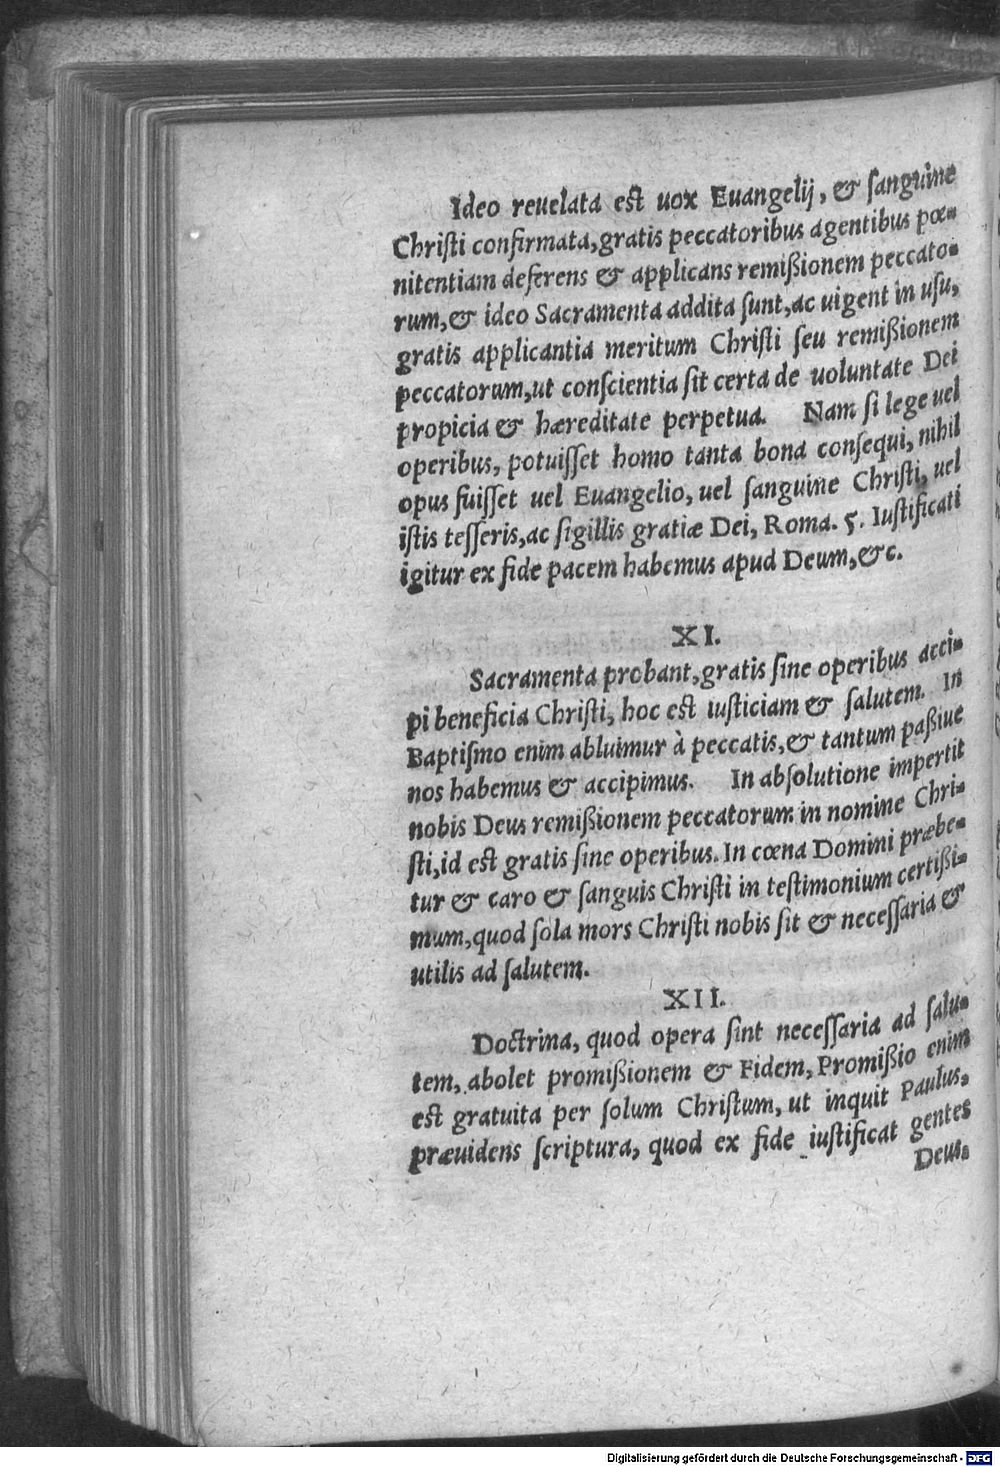 Ideo reuelata est uox Euangelij, & sanguine
Christi confirmata, gratis peccatoribus agentibus pœ-
nitentiam deferens & applicans remißionem peccato-
rum, & ideo Sacramenta addita sunt, ac uigent in usu,
gratis applicantia meritum Christi seu remißionem
peccatorum, ut conscientia sit certa de uoluntate Dei
propicia & hæreditate perpetua. Nam si lege uel
operibus, potuisset homo tanta bona consequi, nihil
opus fuisset uel Euangelio, uel sanguine Christi, uel
istis tesseris, ac sigillis gratiæ Dei, Roma. 5. Iustificati
igitur ex fide pacem habemus apud Deum, &c.
XI.
Sacramenta probant, gratis sine operibus acci-
pi beneficia Christi, hoc est iusticiam & salutem. In
Baptismo enim abluimur à peccatis, & tantum paßiue
nos habemus & accipimus. In absolutione impertit
nobis Deus remißionem peccatorum in nomine Chri-
sti, id est gratis sine operibus. In cœna Domini præbe-
tur & caro & sanguis Christi in testimonium certißi-
mum, quod sola mors Christi nobis sit & necessaria &
utilis ad salutem.
XII.
Doctrina, quod opera sint necessaria ad salu-
tem, abolet promißionem & Fidem, Promißio enim
est gratuita per solum Christum, ut inquit Paulus.
præuidens scriptura, quod ex fide iustificat gentes
Deus.
Digitalisierung gefördert durch die Deutsche Forschungsgemeinschaft - DFG